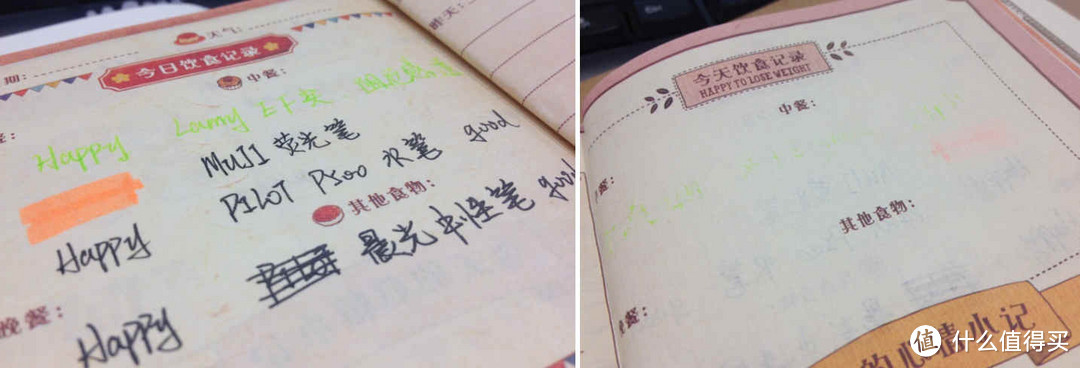 天气:
期:
昨天:
今日饮食记录
中餐:
Happy Lamy
MUJI 荧光笔
PILOT P500 水笔 good
其他食物:
Happy 晨光中性笔 good
晚餐:
Happy
今天饮食记录
HAPPY TO LOSE WEIGHT
中餐:
餐:
其他食物:
晚餐:
的心情小记
值 什么值得买